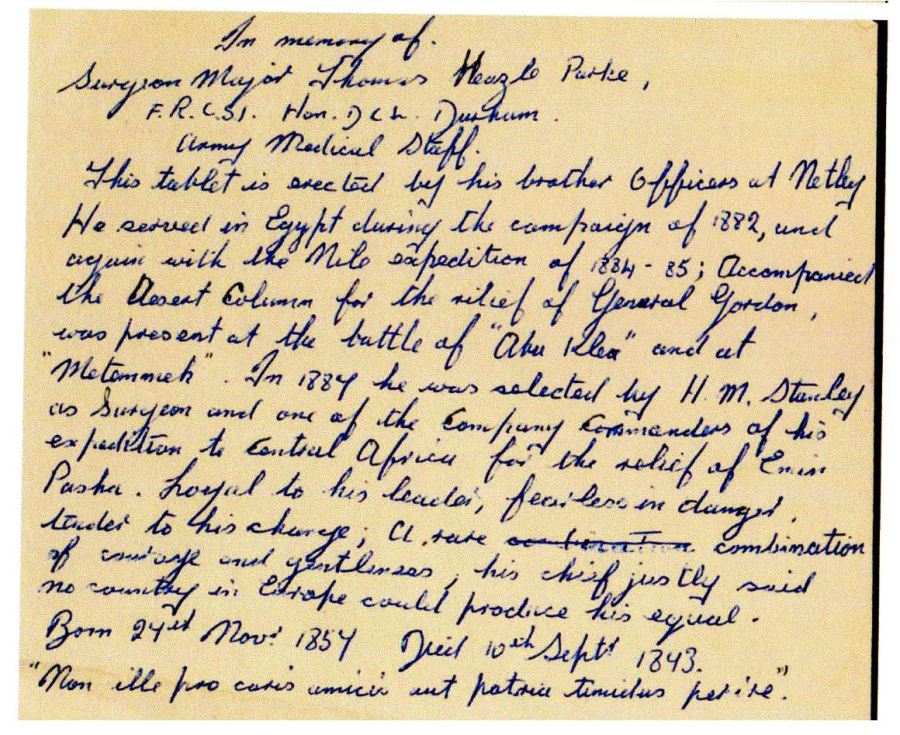 In memory of.
Surgeon Major Thomas Heazle Parke,
F.R.C.SI. Hon. DCL. Durham.
Army Medical Staff.
This tablet is erected by his brother Officers at Netley
He served in Egypt during the campaign of 1882, and
again with the Nile expedition of 1884-85; Accompanied
the Desert Column for the relief of General Gordon,
was present at the battle of "Abu Klea" and at
"Metemmeh". In 1887 he was selected by H.M. Stanley
as Surgeon and one of the Company Commanders of his
expedition to Central Africa for the relief of Emin
Pasha. Loyal to his leader, fearless in danger,
tender to his charge; A rare combination combination
of courage and gentleness, his chief justly said
no country in Europe could produce his equal.
Born 24th Novr 1857 Died 10th Septr 1893.
"Non ille pro caris amicis aut patria timidus perire".